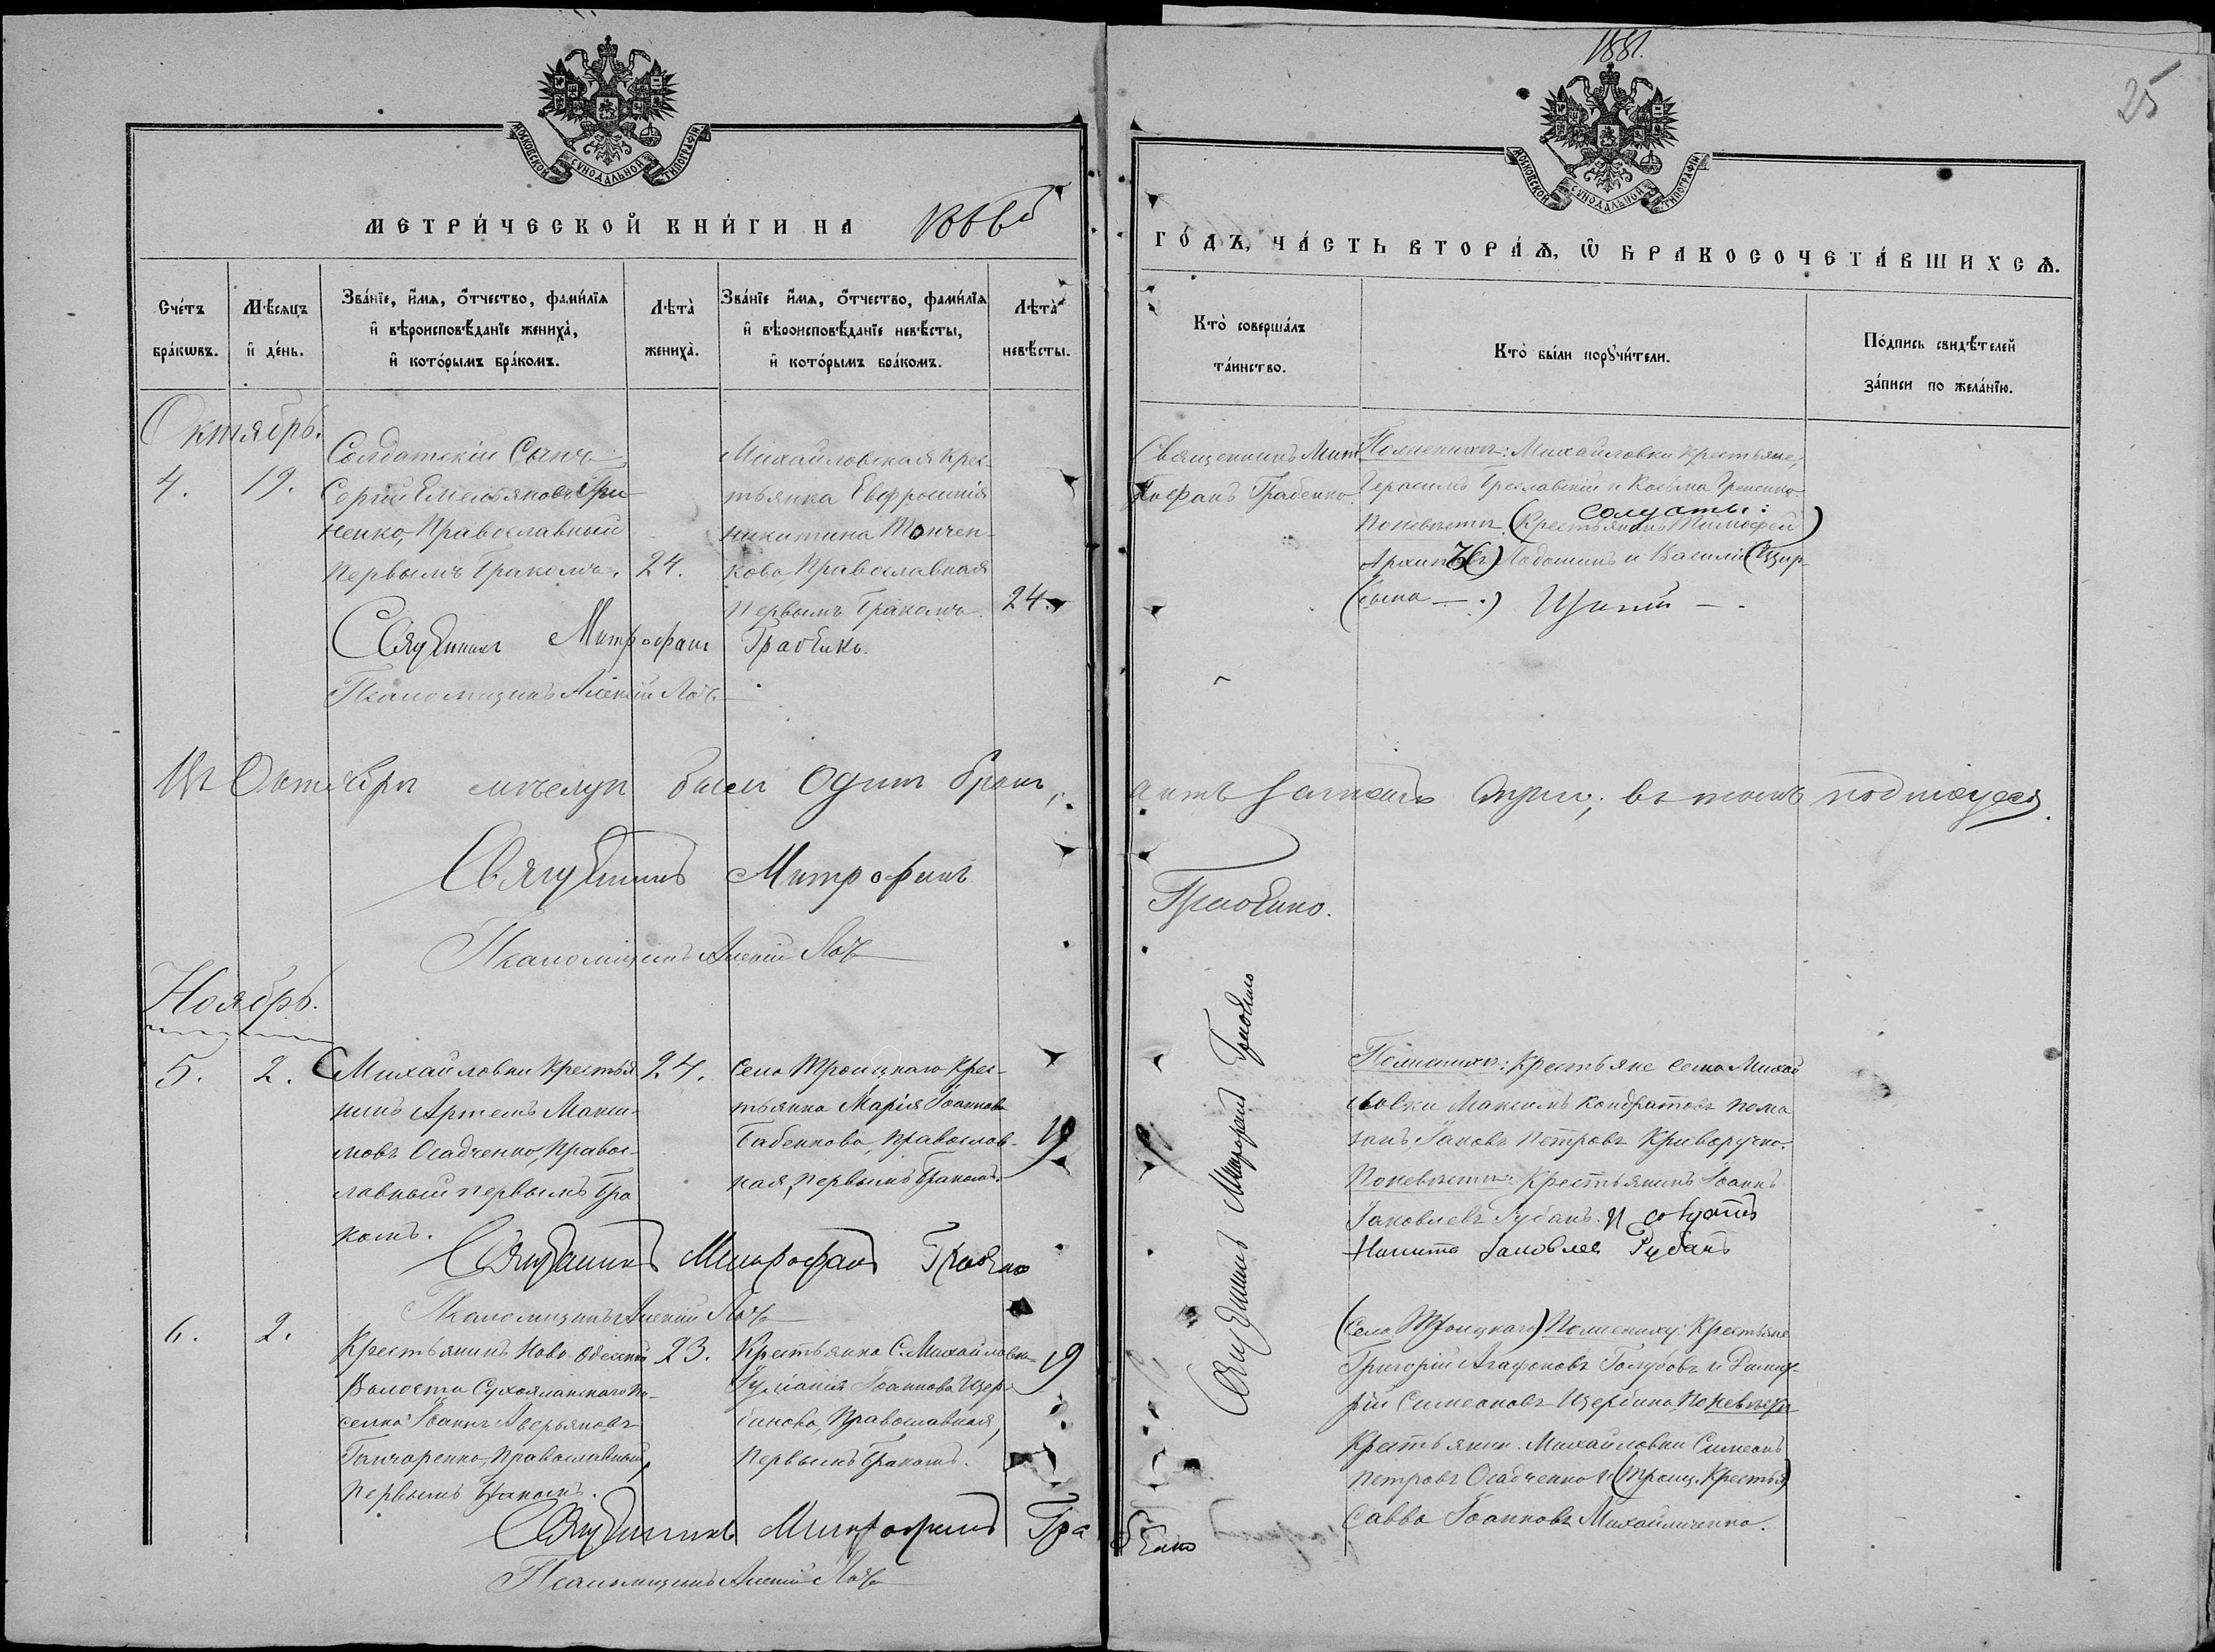 1881.
25
МОСКОВСКОЙ СѴНОДАЛЬНОЙ ТИПОГРАФІИ
МОСКОВСКОЙ СѴНОДАЛЬНОЙ ТИПОГРАФІИ
МЕТРИ́ЧЕСКОЙ КНИ́ГИ НА
ГО́ДЪ, ЧА́СТЬ ВТОРА́Ѧ, Ѽ БРАКОСОЧЕТА́ВШИХСѦ.
Сче́тъ бра́кѡвъ.
Мѣ́сяцъ и҆ де́нь.
Зва́нїе, и҆́мѧ, ѻ҆́тчество, фами́лїѧ
и҆ вѣроисповѣ́данїе жениха̀,
и҆ кото́рымъ бра́комъ.
Лѣта̀ жениха̀.
Зва́нїе и҆́мѧ, ѻ҆́тчество, фами́лїѧ
и҆ вѣроисповѣ́данїе невѣ́сты,
и҆ кото́рымъ бра́комъ.
Лѣта̀ невѣ́сты.
Кто̀ соверша́лъ
та́инство.
Кто̀ бы́ли порꙋчи́тели.
По́дпись свидѣ́телей
за́писи по жела́нїю.
Октябрь.
4. 19.
Солдатскій Сынъ
Сергій Емельяновъ Гри-
ненко, Православный
первымъ бракомъ. 24.
Михайловская Крес-
тьянка Евфросинія
Никитина Тончен-
кова Православная
первымъ бракомъ. 24.
Священникъ Мит
рофанъ Грабенко
По женихѣ: Михайловки крестьяне,
Герасимъ Бреславскій и Козьма
По невѣстѣ (Крестьянинъ Тимофей)
Солдаты:
и Василій
Священникъ Митрофанъ Грабенко.
Псаломщикъ Алексій
Въ Октябрѣ месяцѣ былъ одинъ бракъ,
въ томъ подписуемся.
Священникъ Митрофанъ
Грабенко.
Псаломщикъ Алексій
Ноябрь.
5. 2.
С Михайловки Крестья
нинъ Артемъ Макси-
мовъ Осадченко, Правос-
лавный первымъ бра
комъ.
24.
Села Троицкаго Крес-
тьянка Марія Іоаннова
Бабенкова, Православ-
ная, первымъ бракомъ.
19
Священникъ Митрофанъ Грабенко
По женихѣ: Крестьяне села Михай
ловки Максимъ Кондратовъ
Іаковъ Петровъ Криворучко.
По невѣстѣ: Крестьянинъ Іоаннъ
Іаковлевъ Рубанъ. и солдатъ
Никита Іаковлев Рубанъ
Священникъ Митрофанъ Грабенко
Псаломщикъ Алексій
6. 2.
Крестьянинъ Ново-Одесской
Волости Сухояланскаго по-
селка Іоаннъ Аверьяновъ
Гончаренко, Православный,
первымъ бракомъ.
23.
Крестьянка С. Михайловки
Іуліанія Іоаннова Щер-
бинова, Православная,
первымъ бракомъ.
19
(Села Троицкаго) По жениху: Крестьяне
Григорій Агафоновъ Голубовъ и Димит-
рій Симеоновъ Щербина По невѣстѣ
Крестьянин. Михайловки Симеонъ
Петровъ Осадченко и (Троиц. Крестья)
Савва Іоанновъ Михайличенко.
Священникъ Митрофанъ Гра
бенко
Псаломщикъ Алексій